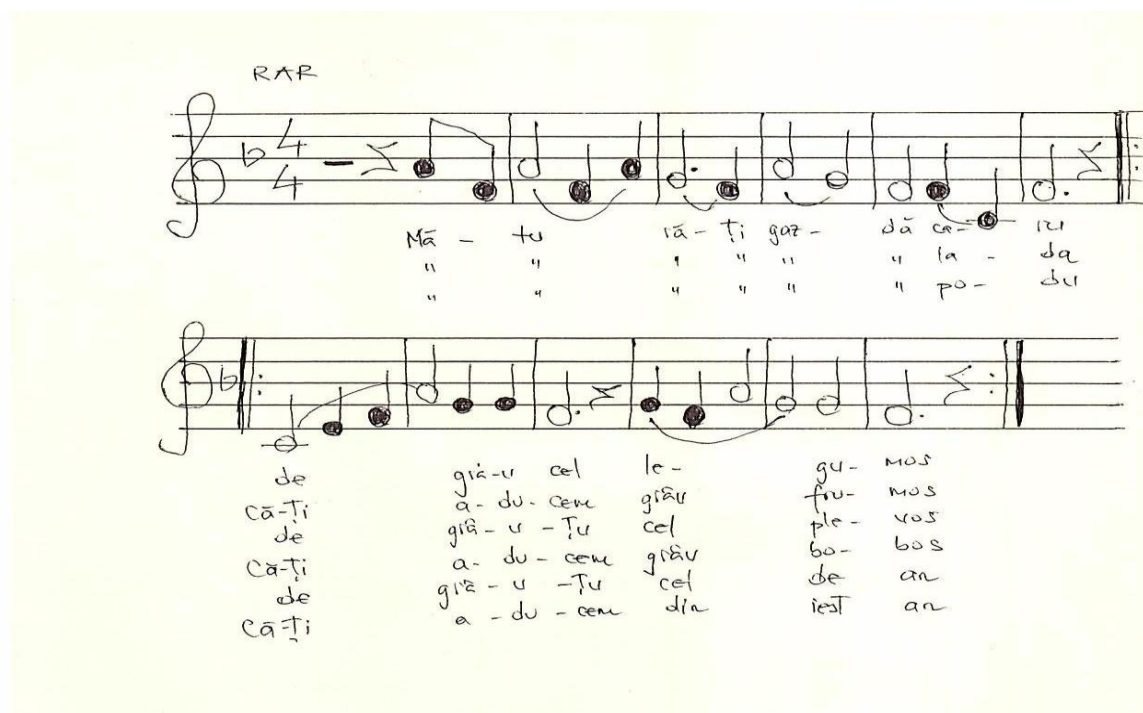 RAR
4
4
Mă - tu ră - ți gaz - dă ca - su
" " " " " " la - da
" " " " " " po - du
de grâ-u cel le- gu- mos
Că-ți a-du-cem grâu fru- mos
de grâ-u-țu cel ple- vos
Că-ți a-du-cem grâu bo- bos
de grâ-u-țu cel de an
Că-ți a-du-cem din iest an